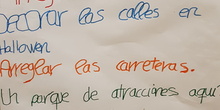 Decorar las calles en
Hallowen
Arreglar las carreteras.
Un parque de atracciones aquí